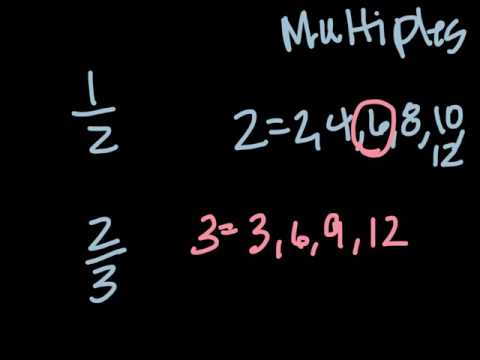 Multiples
1/2
2=2,4,6,8,10,
12
2/3
3=3,6,9,12